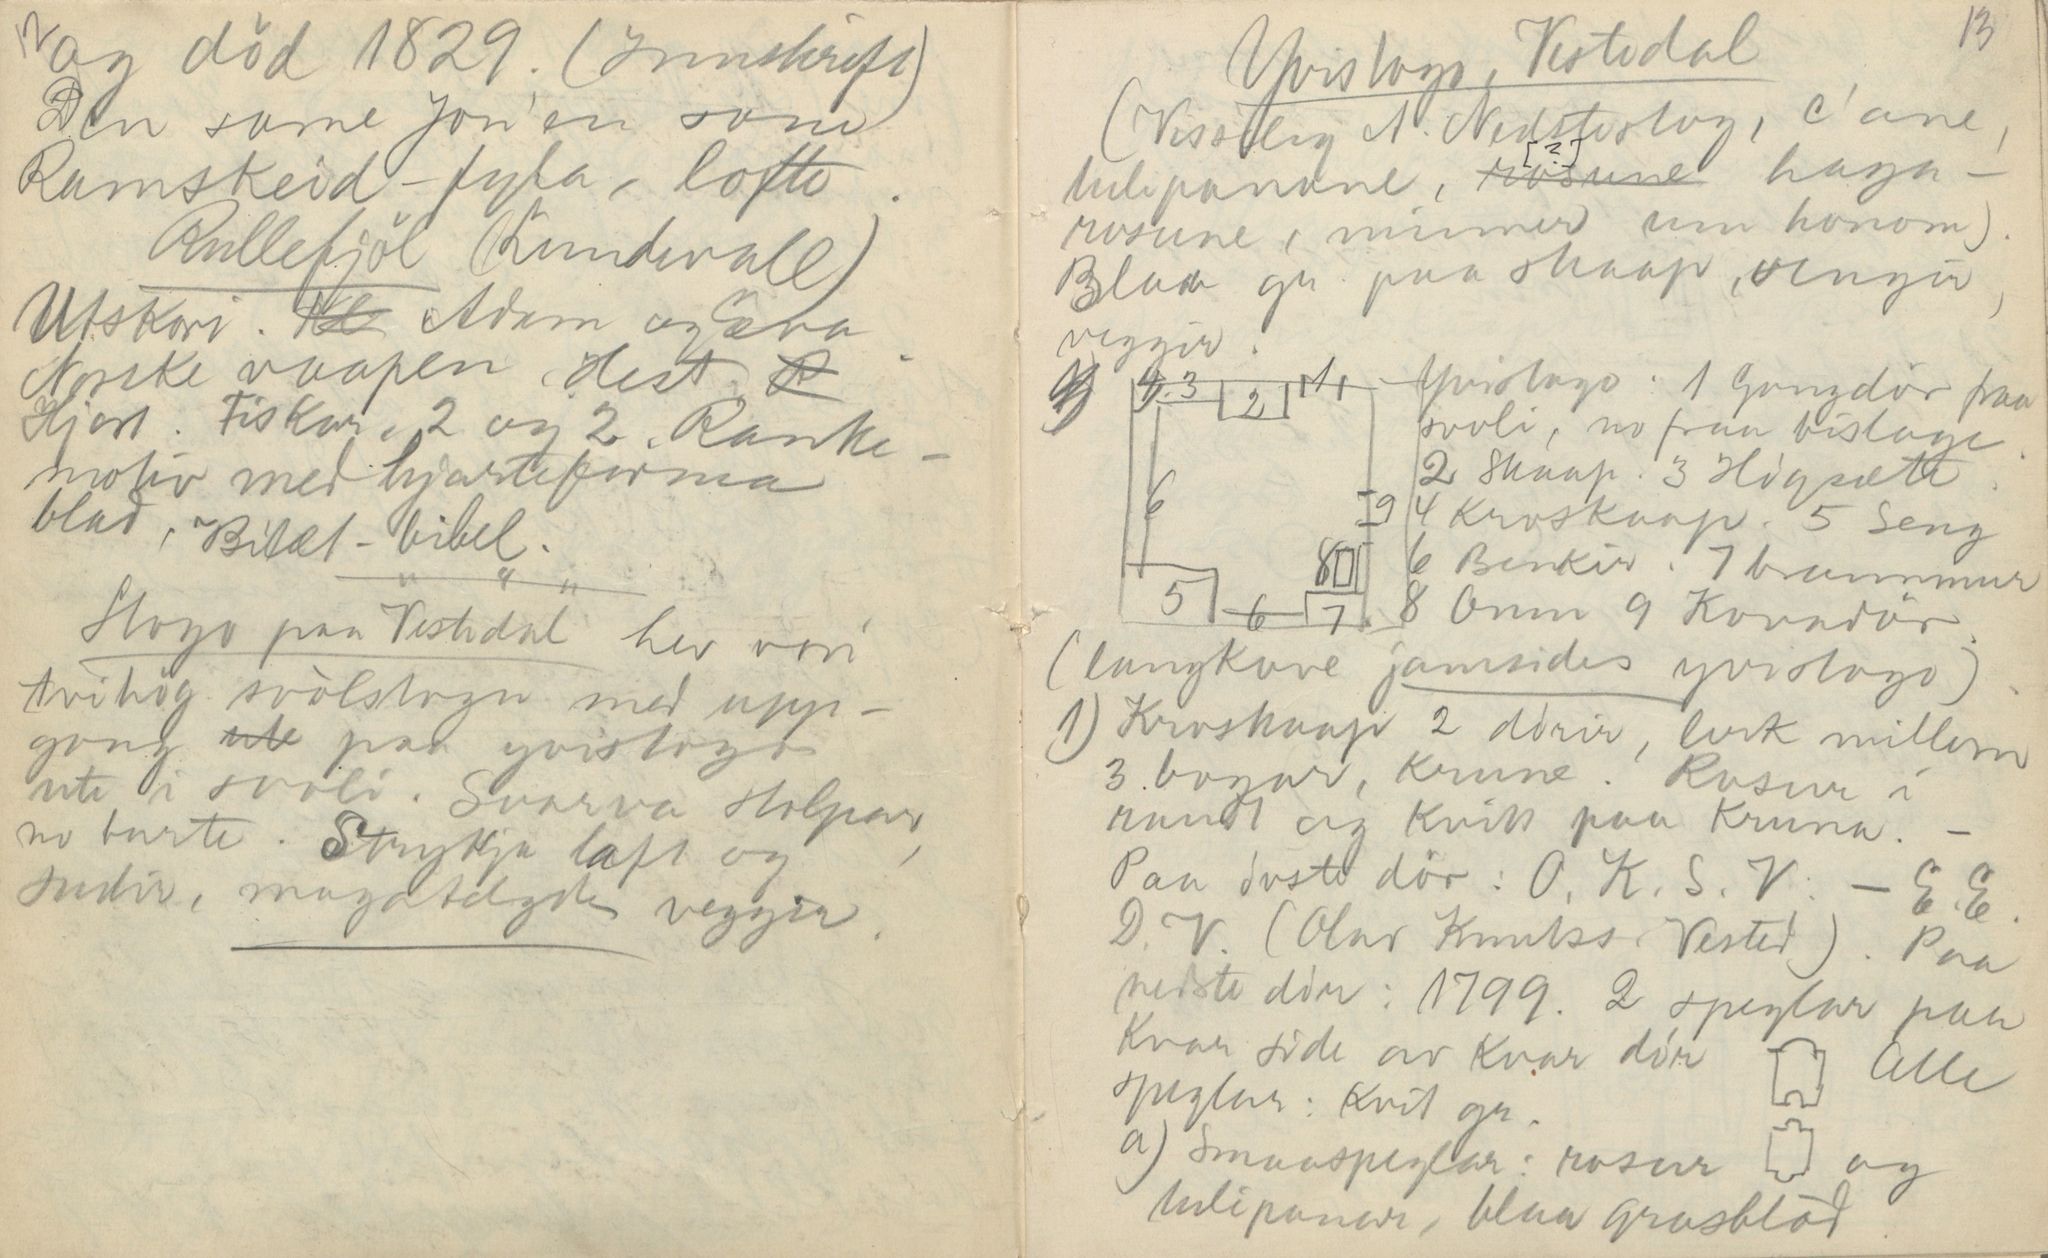 12
og död 1829. (Innskrift)
Den same Jon'en som
Ramskeid-fyla, lofte.
Rullefjöl (Kundevall)
Utskori. Adam og Æva.
Norske vaapen. Hest.
Hjort. Fiskar, 2 og 2. Ranke-
motiv med hjarteforma
blad, Bilæt-bibel.
" " "
Stogo paa Vestedal hev vori
tvihög svölstogu med upp-
gong ute paa yvistogo
ute i svöli. Svarva stolpar,
no burte. Strykja laft og
sudir, magatelgde veggir.
13
Yvistogo, Vestedal
(Nisseleg A. Nedstestog, c'ane,
tulipanane, rosune [?] haga-
rosune, minner um honom).
Blaa gr. paa skaap, sengir,
veggir.
4 3 2 1 Yvistogo: 1 Gongdör fraa
svoli, no fraa bislage.
2 Skaap. 3 Högsæte.
6 9 4 Kroskaap. 5 Seng
8 6 Benkir. 7 brannmur
5 6 7 8 Omn 9 Kovadör.
(langkove jamsides yvistogo).
1) Kroskaap 2 dörir, lerk millom
3 bogar, krune. Rosur i
raudt og kvitt paa kruna. -
Paa övste dör: O. K. S. V. - E. E.
D. V. (Olav Knutss. Vested). Paa
nedste dör: 1799. 2 speglar paa
kvar side av kvar dör Alle
speglar: kvit gr.
a) Smaaspeglar: rosur og
tulipanar, blaa grasblöd